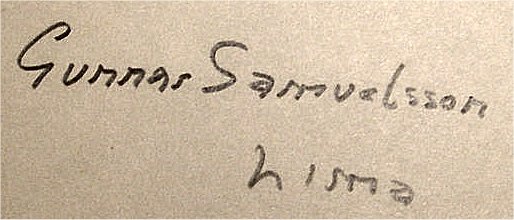 Gunnar Samuelsson
Lisma